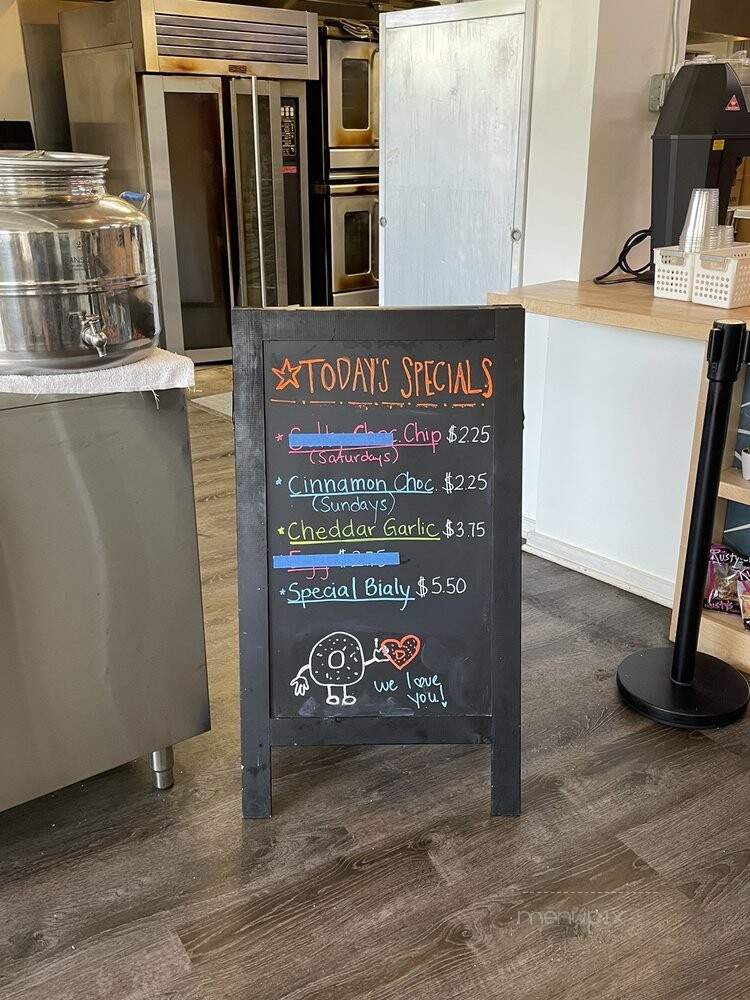 ☆TODAY'S SPECIALS
* Salty Choc. Chip $2.25
(Saturdays)
* Cinnamon Choc. $2.25
(Sundays)
* Cheddar Garlic $3.75
Egg $2.75
* Special Bialy $5.50
we love
you!
Rusty's
menupix